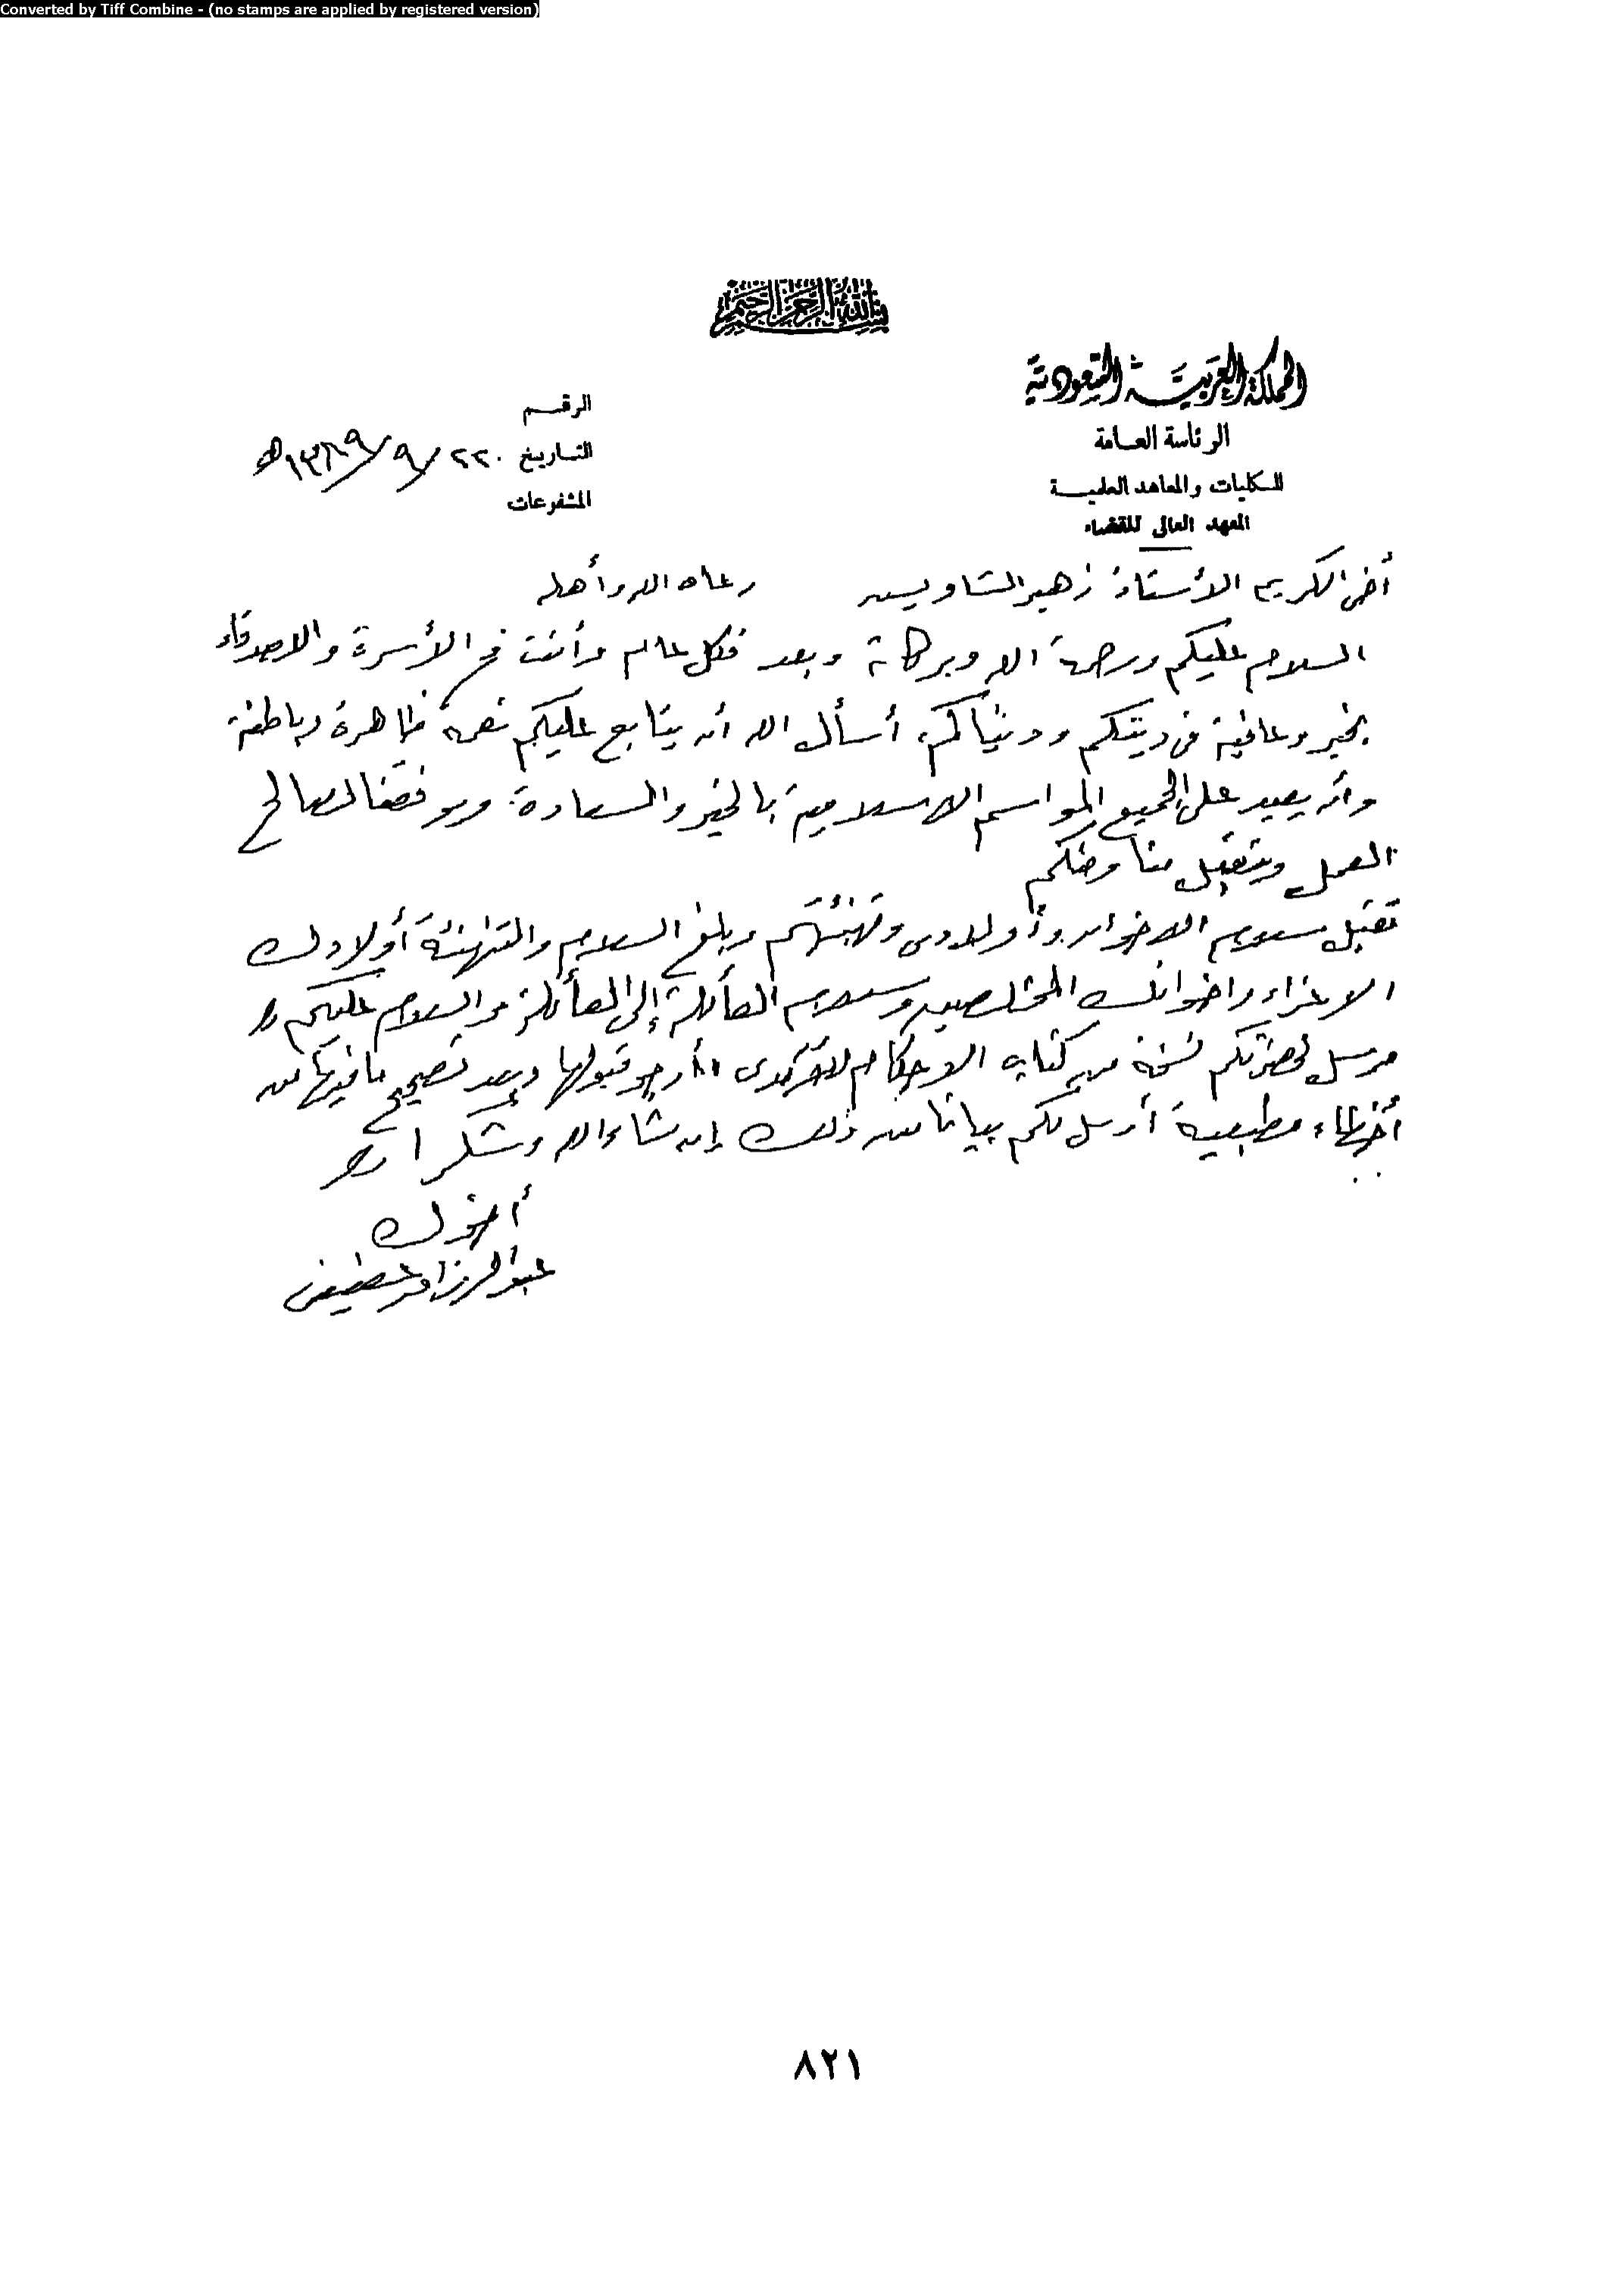 Converted by Tiff Combine - (no stamps are applied by registered version)
بسم الله الرحمن الرحيم
المملكة العربية السعودية
الرئاسة العامة
للكليات والمعاهد العلمية
المعهد العالى للقضاء
الرقم
التاريخ ٢٢ / ٩ / ١٣٨٩ هـ
المشفوعات
أخى الكريم الأستاذ زهير الشاويس رعاه الله وأهله
السلام عليكم ورحمة الله وبركاته وبعد فكل عام وأنت فى الأسرة والاصدقاء
بخير وعافية فى دينكم ودنياكم، أسأل الله أن يتابع عليكم نعمه ظاهرة وباطنة
وأن يعيد على الجميع المواسم الاسلامية بالخير والسعادة. ويوفقنا لصالح
العمل ويتقبل منا ومنكم
تقبل سلام الاخوان وأولادى وتهنئتهم وبلغ السلام والتهنئة أولادك
الاعزاء واخوانك المخلصين وسلام العائلة إلى العائلة والسلام عليكم ور
مرسل لحضرتكم نسخة من كتاب الاحكام للآمدى أرجو قبولها وبعد تصحيح ما فيها من
أخطاء مطبعية أرسل لكم بيانا من ذلك إن شاء الله وشكرا
أخوك
عبد الرزاق عفيفى
٨٢١